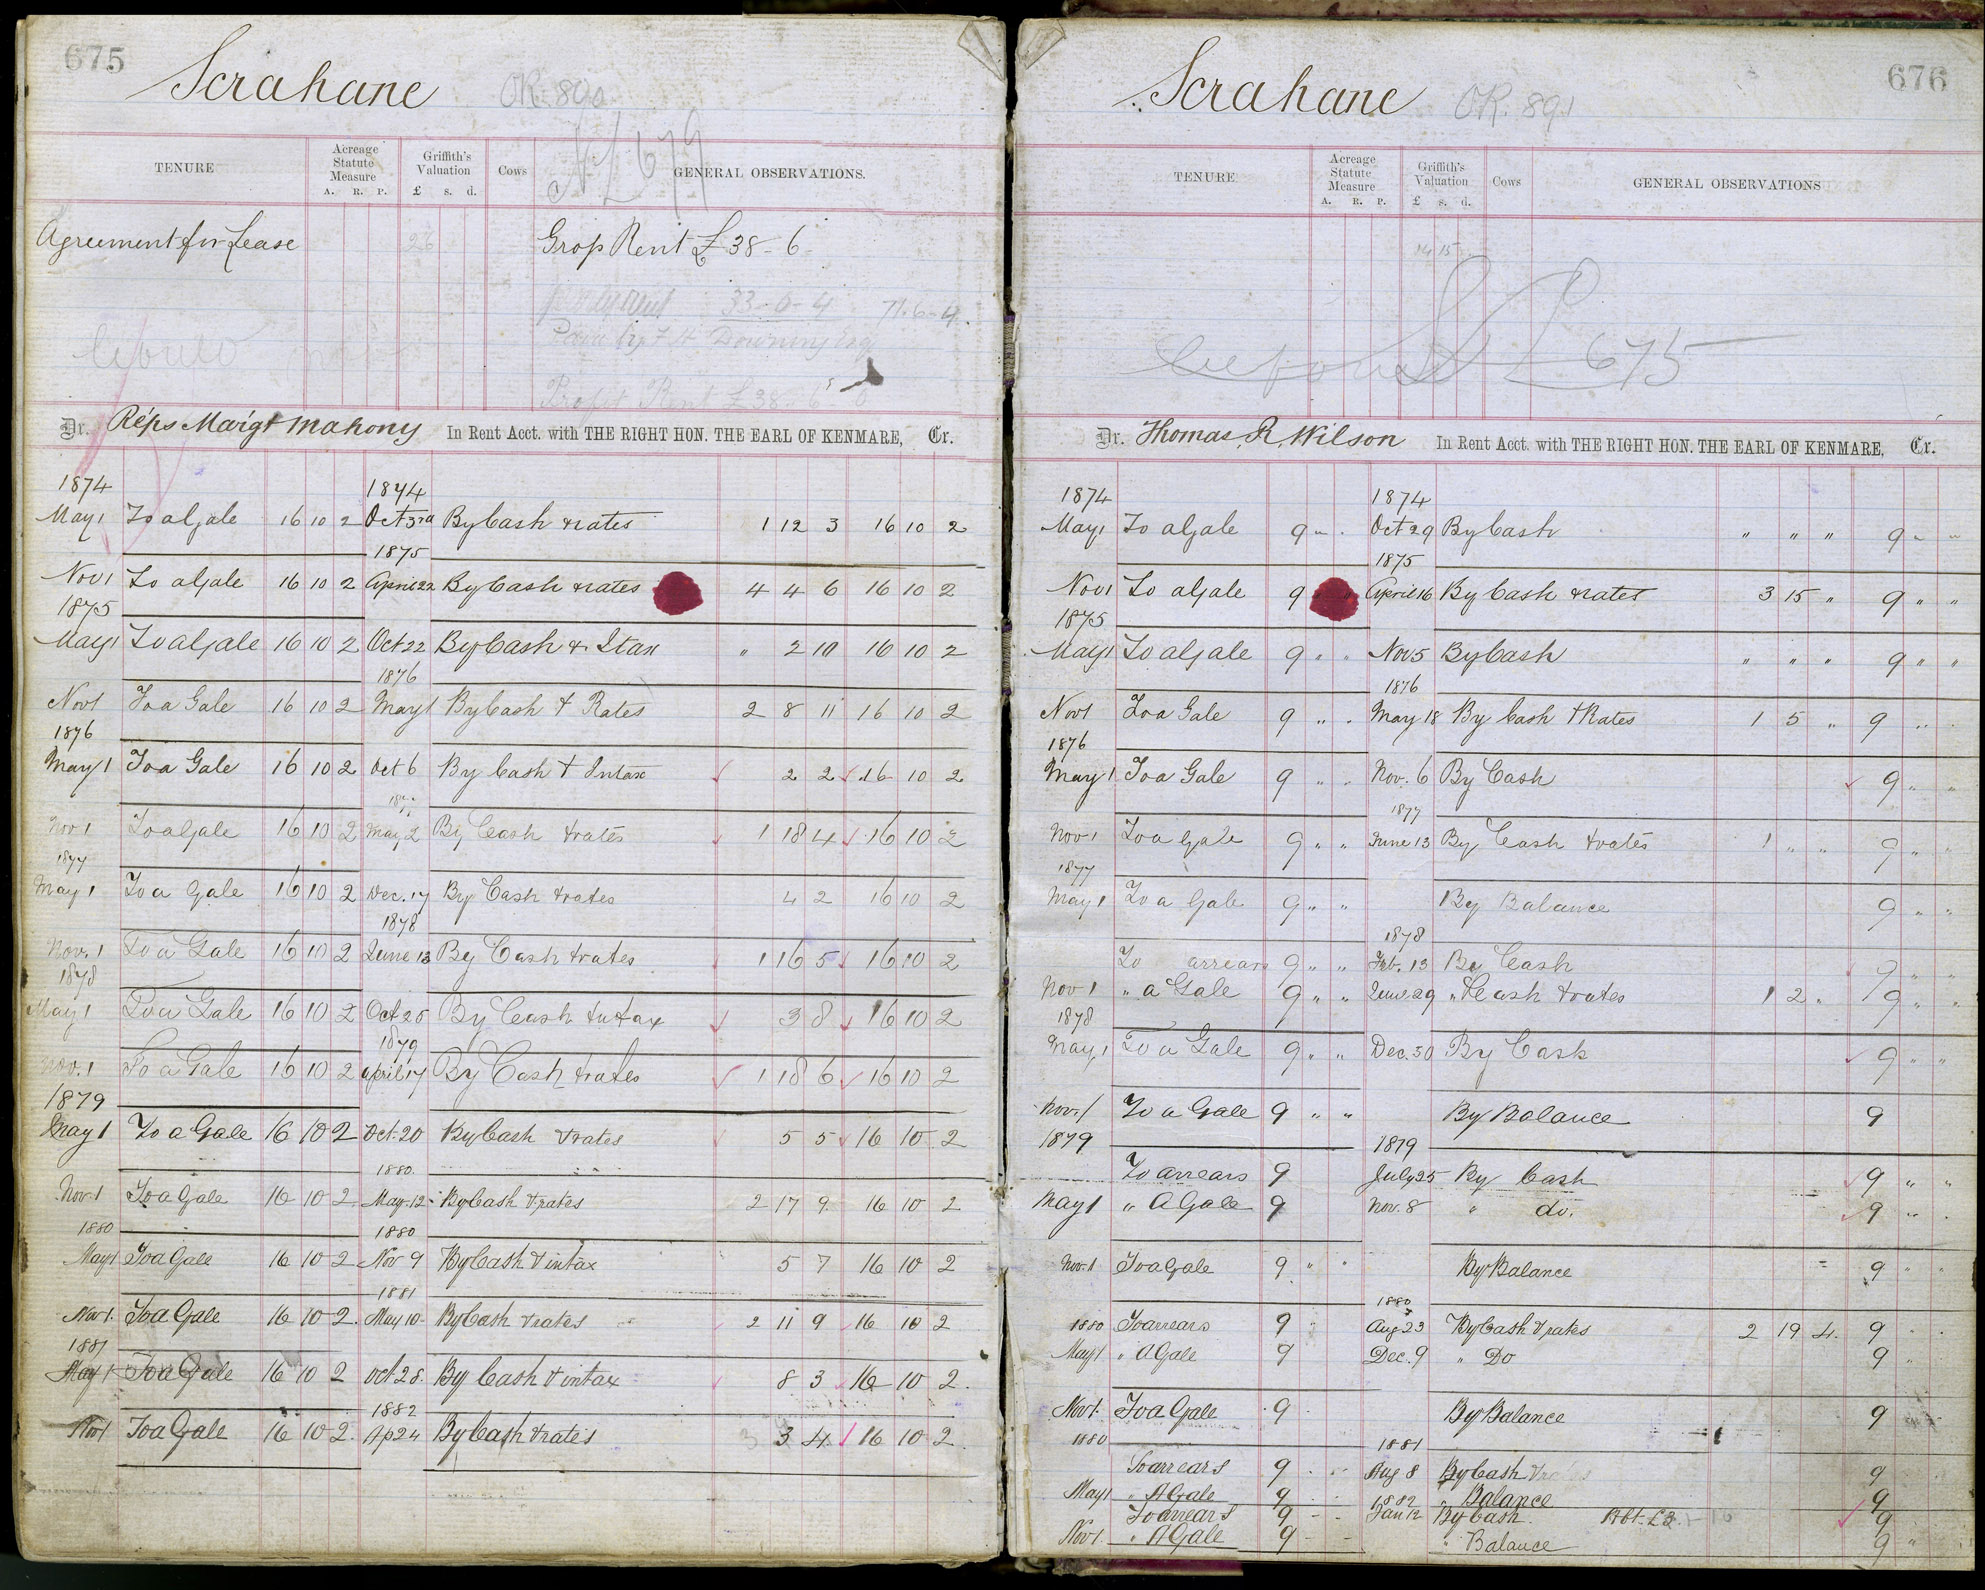 675
Scrahane
OR. 890
679
TENURE
Acreage Statute Measure
A. R. P.
Griffith's Valuation
£ s. d.
Cows
GENERAL OBSERVATIONS.
Agreement for Lease 26 Grofs Rent £ 38 - 6 -
33 - 0 - 4 71. 6 - 4.
Downing Esq
Profit Rent £ 38 - 6
Dr. Reps Margt Mahony In Rent Acct. with THE RIGHT HON. THE EARL OF KENMARE, Cr.
1874 1874
May 1 To a Gale 16 10 2 Oct 3rd By Cash & rates 1 12 3 16 10 2
1875
Nov 1 To a Gale 16 10 2 April 22 By Cash & rates 4 4 6 16 10 2
1875
May 1 To a Gale 16 10 2 Oct 22 By Cash & Itax " 2 10 16 10 2
1876
Nov 1 To a Gale 16 10 2 May 1 By Cash & Rates 2 8 11 16 10 2
1876
May 1 To a Gale 16 10 2 Oct 6 By Cash & Intax 2 2 16 10 2
Nov 1 To a Gale 16 10 2 May 2 By Cash & rates 1 18 4 16 10 2
1877
May 1 To a Gale 16 10 2 Dec. 17 By Cash & rates 4 2 16 10 2
1878
Nov. 1 To a Gale 16 10 2 June 13 By Cash & rates 1 16 5 16 10 2
1878
May 1 To a Gale 16 10 2 Oct 25 By Cash & intax 3 8 16 10 2
1879
Nov. 1 To a Gale 16 10 2 April 17 By Cash & rates 1 18 6 16 10 2
1879
May 1 To a Gale 16 10 2 Oct. 20 By Cash & rates 5 5 16 10 2
1880
Nov. 1 To a Gale 16 10 2 May. 12 By Cash & rates 2 17 9 16 10 2
1880 1880
May 1 To a Gale 16 10 2 Nov 9 By Cash & intax 5 7 16 10 2
1881
Nov 1. To a Gale 16 10 2. May 10 By Cash & rates 2 11 9 16 10 2
1881
May 1 To a Gale 16 10 2 Oct 28. By Cash & intax 8 3 16 10 2.
1882
Nov 1 To a Gale 16 10 2. Ap 24 By Cash & rates 3 3 4 16 10 2.
676
Scrahane
OR. 891
TENURE.
Acreage Statute Measure
A. R. P.
Griffith's Valuation
£ s. d.
Cows
GENERAL OBSERVATIONS
14 15
675
Dr. Thomas R. Wilson In Rent Acct. with THE RIGHT HON. THE EARL OF KENMARE, Cr.
1874 1874
May 1 To a Gale 9 " . Oct 29 By Cash " " " 9 " "
1875
Nov 1 To a Gale 9 April 16 By Cash & rates 3 15 " 9 " "
1875
May 1 To a Gale 9 " " Nov 5 By Cash " " " 9 " "
1876
Nov 1 To a Gale 9 " . May 18 By Cash & Rates 1 5 " 9 " .
1876
May 1 To a Gale 9 " . Nov. 6 By Cash 9 " "
1877
Nov. 1 To a Gale 9 " " June 13 By Cash & rates 1 " " 9 " "
1877
May 1 To a Gale 9 " " By Balance 9 " "
1878
To arrears 9 " " Feb. 13 By Cash 9 " "
Nov 1 " a Gale 9 " " June 29 " Cash & rates 1 2 " 9 " "
1878
May 1 To a Gale 9 " " Dec. 30 By Cash 9 " "
Nov. 1 To a Gale 9 " " By Balance 9
1879 1879
To arrears 9 July 25 By Cash 9 " "
May 1 " A Gale 9 Nov. 8 " do. 9 " .
Nov. 1 To a Gale 9 " " By Balance 9 " "
1880
1880 To arrears 9 Aug 23 By Cash & rates 2 19 4. 9
May 1 " A Gale 9 Dec. 9 " Do 9
Nov 1. To a Gale 9 By Balance 9
1880 1881
To arrears 9 Aug 8 By Cash 9
May 1 " A Gale 9 " Balance 9
1882
To arrears 9 Jan 12 By Cash Abt. £3 9
Nov 1. " A Gale 9 " Balance 9